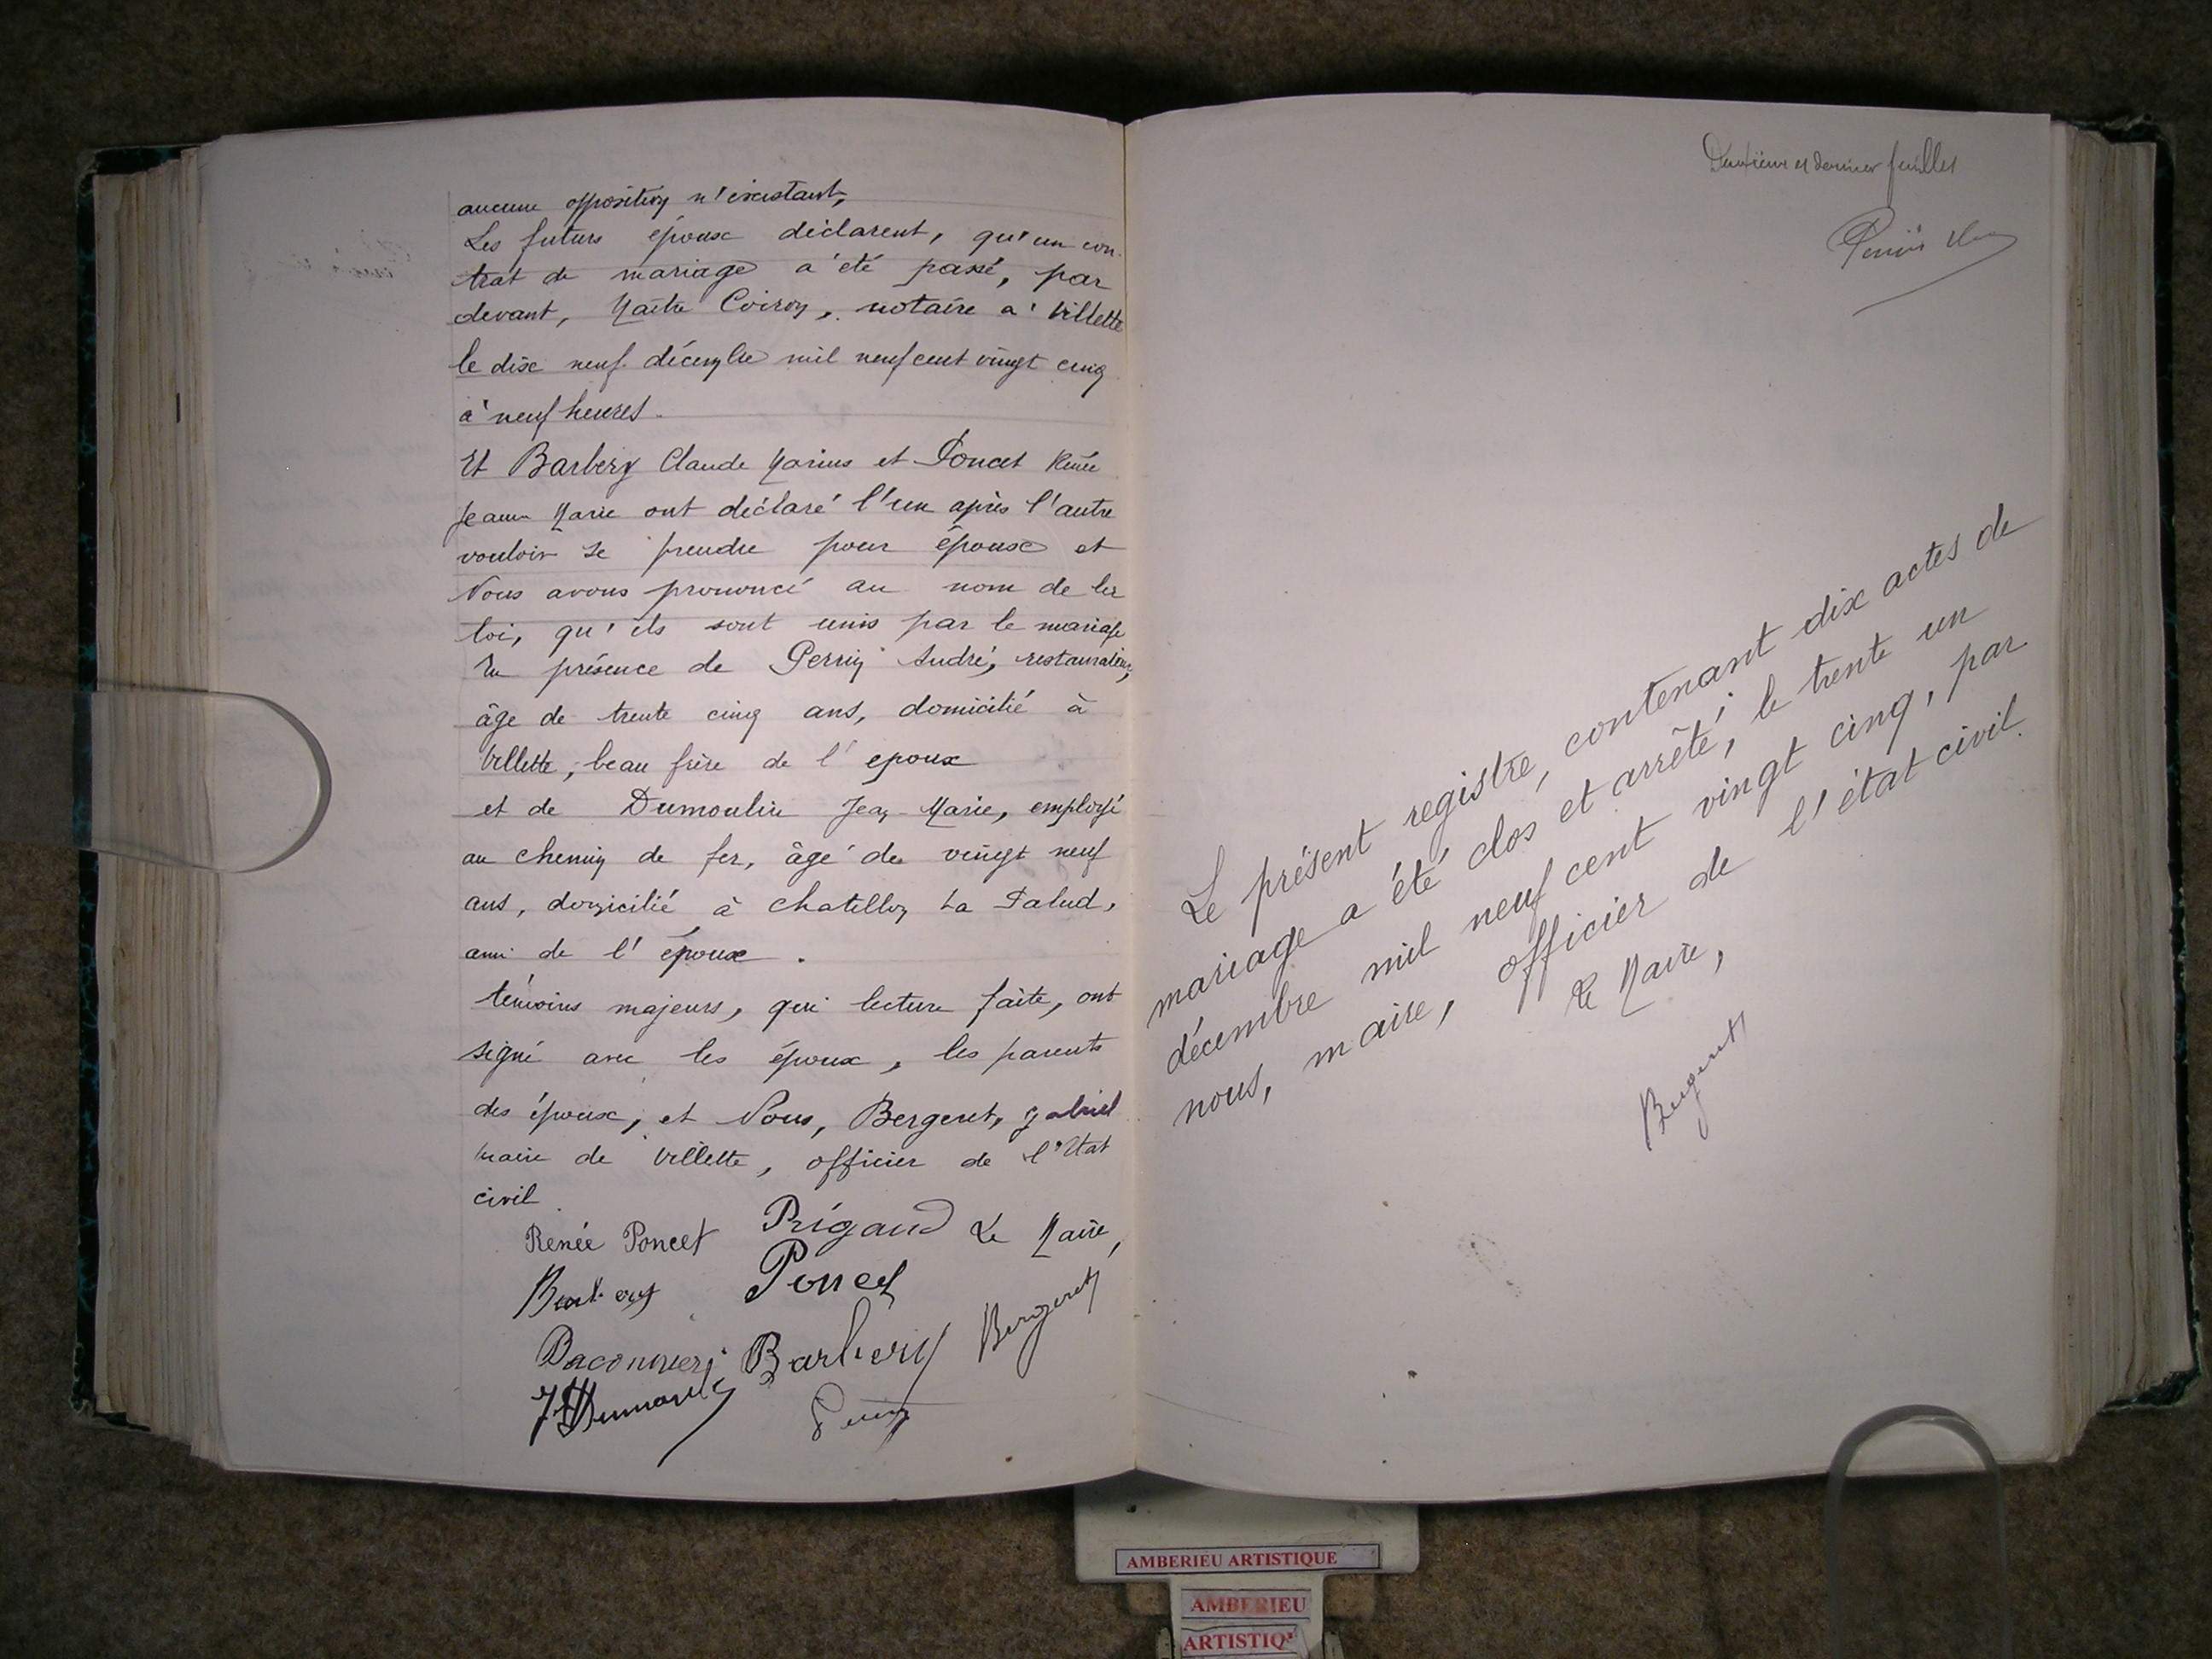 aucune opposition n'existant,
Les futurs époux déclarent, qu'un con-
trat de mariage a été passé, par
devant, Maître Coiron, notaire à Villette
le dix neuf décembre mil neuf cent vingt cinq
à neuf heures.
Et Barbery Claude Marius et Poncet Renée
Jeanne Marie ont déclaré l'un après l'autre
vouloir se prendre pour époux et
Nous avons prononcé au nom de la
loi, qu'ils sont unis par le mariage
En présence de Perrin André, restaurateur,
âgé de trente cinq ans, domicilié à
Villette, beau frère de l'epoux
et de Dumoulin Jean-Marie, employé
au chemin de fer, âgé de vingt neuf
ans, domicilié à Chatillon La Palud,
ami de l'époux.
témoins majeurs, qui lecture faite, ont
signé avec les époux, les parents
des époux, et Nous, Bergeret, gabriel
maire de Villette, officier de l'Etat
civil.
Renée Poncet Prigaud Le Maire,
Barbery Poncet
Barbery Bergeret
JM Dumoulin Perrin
Deuxième et dernier feuillet
Le présent registre, contenant dix actes de
mariage a été clos et arrêté, le trente un
décembre mil neuf cent vingt cinq, par
nous, maire, officier de l'état civil.
Le Maire,
Bergeret
AMBERIEU ARTISTIQUE
AMBERIEU
ARTISTIQ